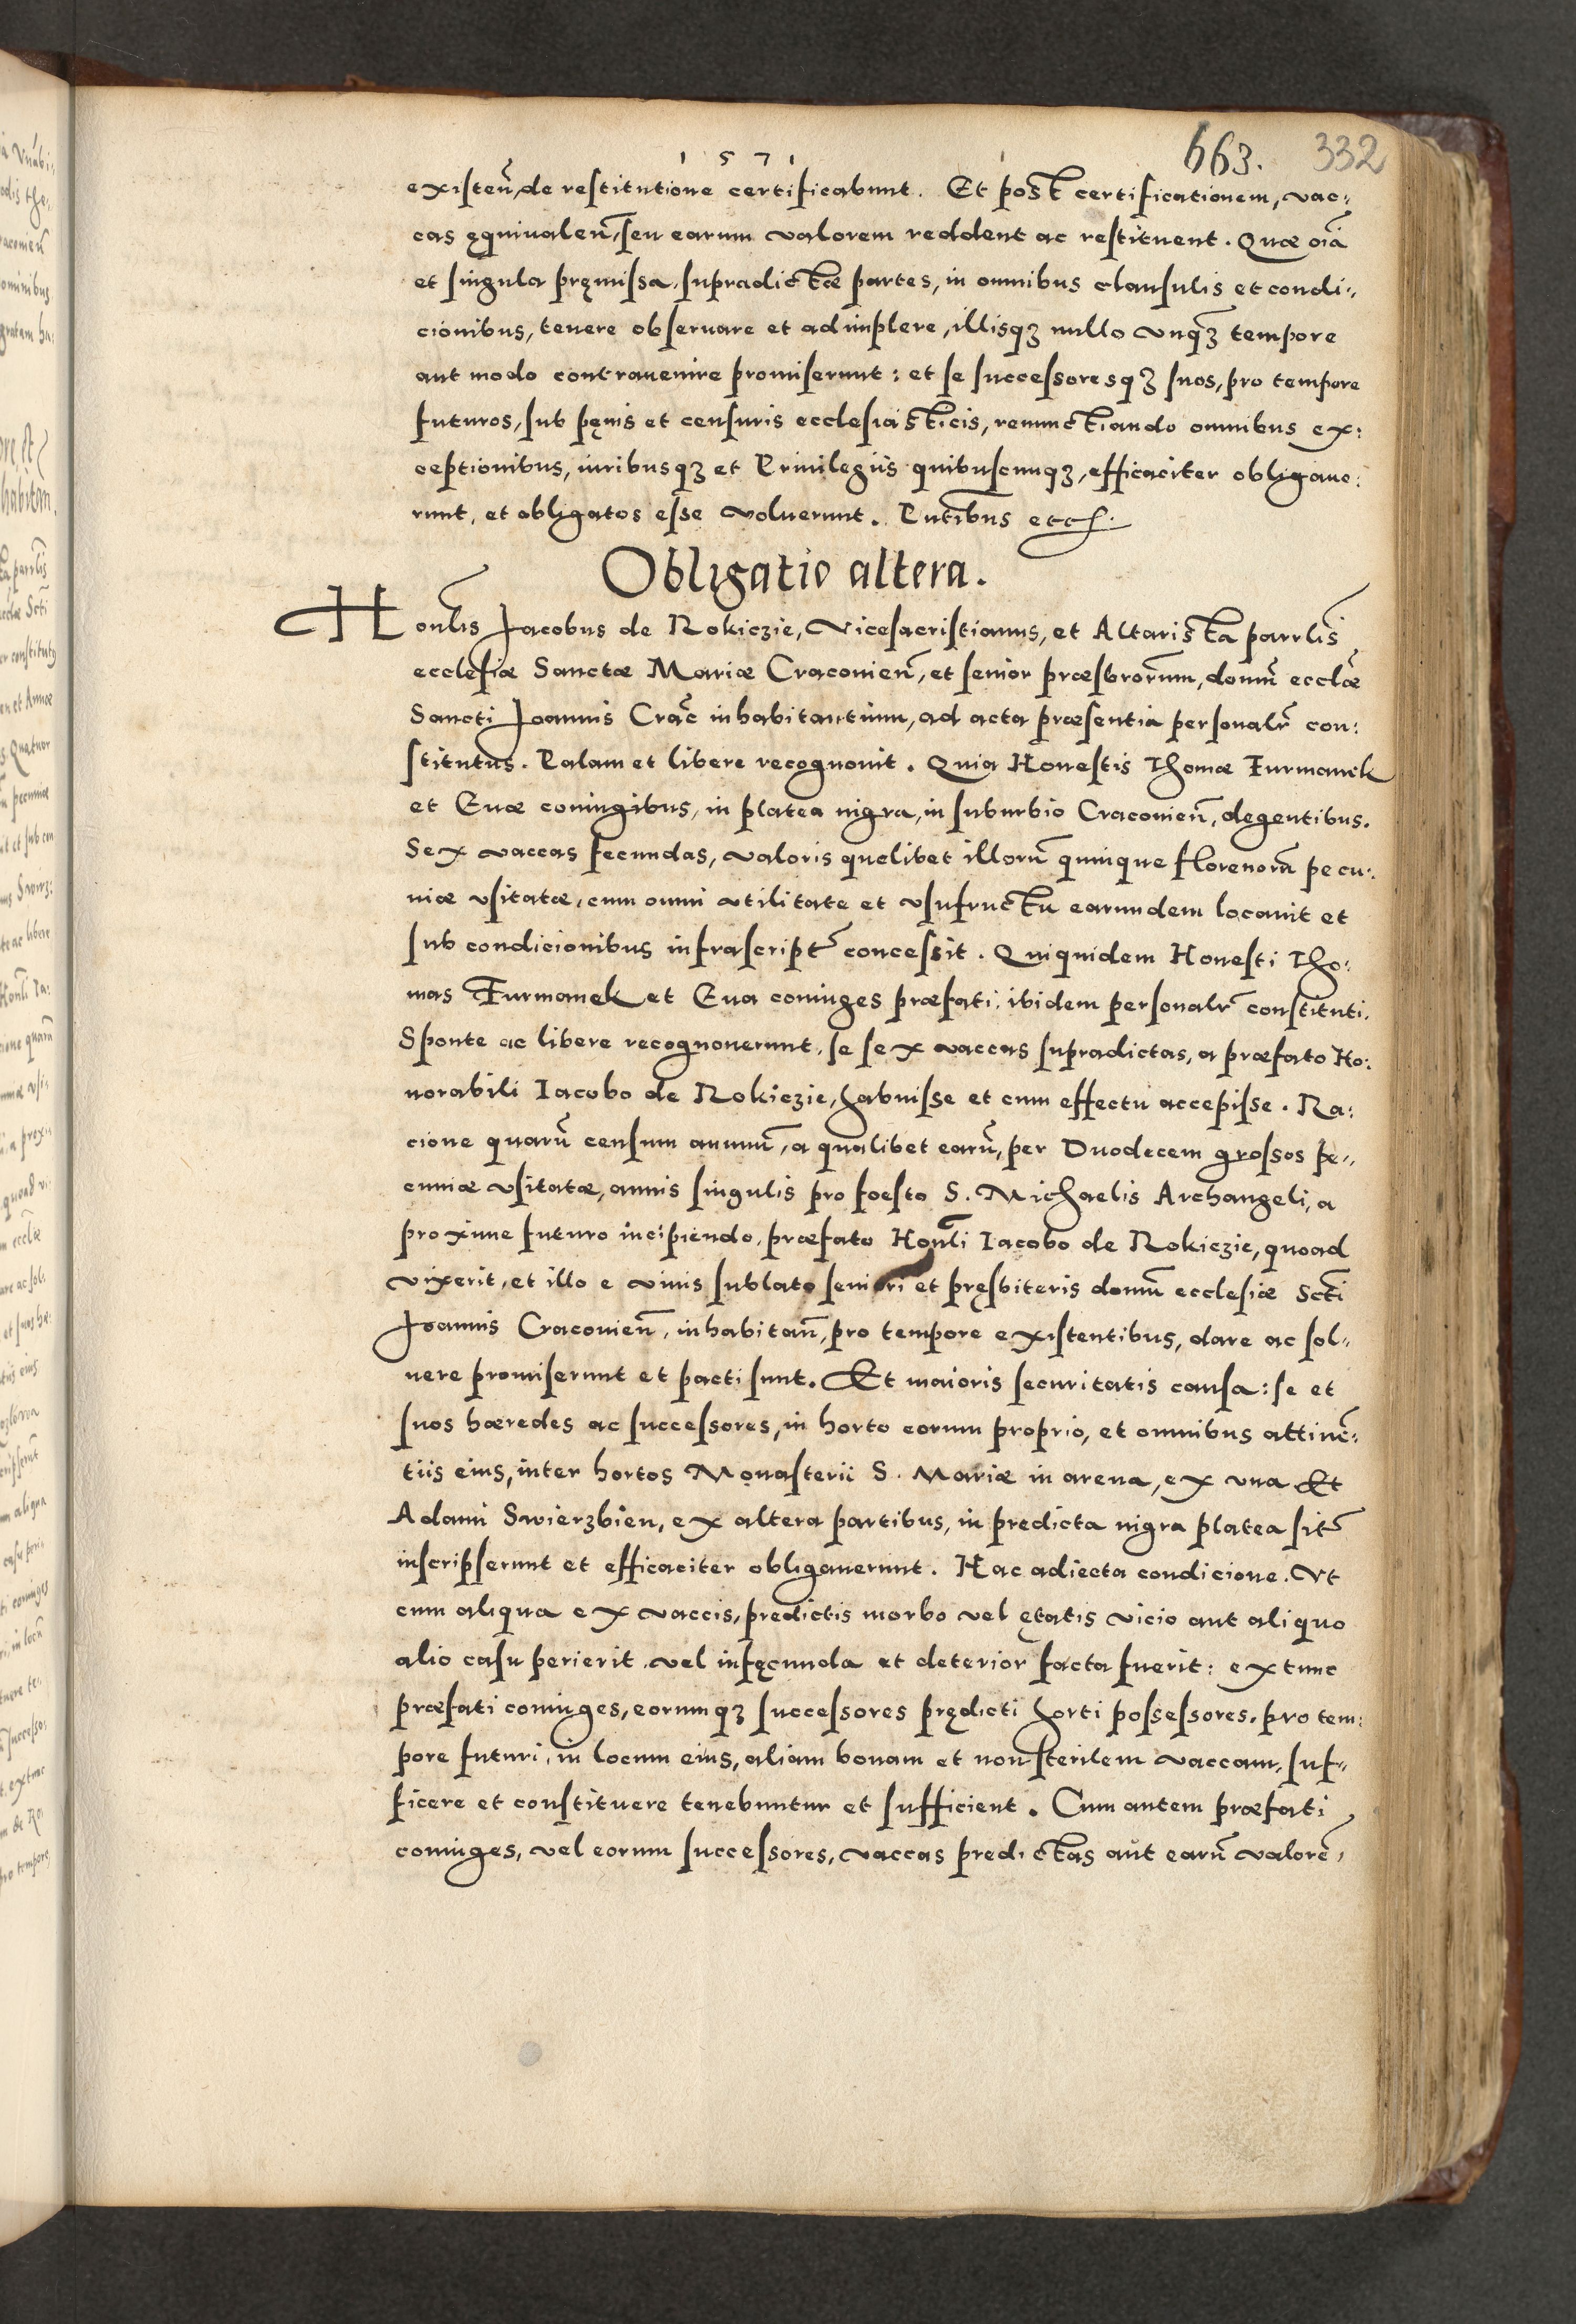 1 5 7 1
663. 332
existen̄, de restitutione certificabunt. Et post certificationem, vac:
cas ęquiualen̄, seu earum valorem reddent ac restituent. Quæ oı̄a
et singula pręmissa, supradictæ partes, in omnibus clausulis et condi:
cionibus, tenere obseruare et adimplere, illisqꝫ nullo vnqꝫ tempore
aut modo contrauenire promiserunt: et se successoresqꝫ suos, pro tempore
futuros, sub pęnis et censuris ecclesiasticis, renunctiando omnibus ex:
ceptionibus, iuribusqꝫ et Priuilegiis quibuscunqꝫ, efficaciter obligaue:
runt, et obligatos esse voluerunt. Pntibus etc.
Obligatio altera.
Honlis Jacobus de Rokiczie, Vicesacristianus, et Altarista parrlis
ecclesiæ Sanctæ Mariæ Cracouien̄, et senior præsbrorum, domū ecclæ
Sancti Joannis Crac̄ inhabitantium, ad acta præsentia personalr̄ con:
stitutus. Palam et libere recognouit. Quia Honestis Thomæ Furmanek
et Euæ coniugibus, in platea nigra, in suburbio Cracouien̄, degentibus.
Sex vaccas fecundas, valoris quelibet illorū quinque florenorū pecu:
niæ vsitatæ, cum omni vtilitate et vsufructu earundem locauit et
sub condicionibus infrascript̄ concessit. Quiquidem Honesti Tho:
mas Furmanek et Eua coniuges præfati, ibidem personalr̄ constituti.
Sponte ac libere recognouerunt, se sex vaccas supradictas, a præfato Ho:
norabili Iacobo de Rokiczie, habuisse et cum effectu accepisse. Ra:
cione quarū censum annuū, a qualibet earū, per Duodecem grossos pe:
cuniæ vsitatæ, annis singulis pro foesto S. Michaelis Archangeli, a
proxime futuro incipiendo, præfato Honli Iacobo de Rokiczie, quoad
vixerit, et illo e viuis sublato seniori et pręsbiteris domū ecclesiæ Scti
Joannis Cracouien̄, inhabitan̄, pro tempore existentibus, dare ac sol:
uere promiserunt et pacti sunt. Et maioris securitatis causa: se et
suos hæredes ac successores, in horto eorum proprio, et omnibus attinē:
tiis eius, inter hortos Monasterii S. Mariæ in arena, ex vna Et
Adami Swierzbien, ex altera partibus, in predicta nigra platea sit̄
inscripserunt et efficaciter obligauerunt. Hac adiecta condicione. Vt
cum aliqua ex vaccis, predictis morbo vel ętatis vicio aut aliquo
alio casu perierit vel infęcunda et deterior facta fuerit: extunc
præfati coniuges, eorumqꝫ successores prędicti horti possessores, pro tem:
pore futuri, in locum eius, aliam bonam et non sterilem vaccam, suf:
ficere et constituere tenebuntur et sufficient. Cum autem præfati
coniuges, vel eorum successores, vaccas predictas aut earū valorē,